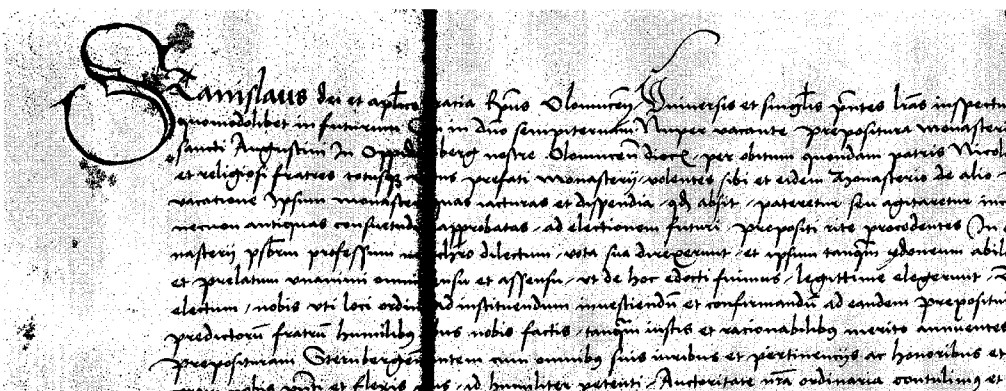 Stanislaus dei et aplice gracia Epūs Olomucen̄ Universis et singlis p̄ntes lr̄as inspectu
quomodolibet in futurum in dno sempiternam Nuper vacante prepositura monaster
sancti Augustini In Oppido berg nostre Olomucen̄ dioc̄ per obitum quondam patris Nicol
et religiosi fratres totusq prefati monasterij volentes sibi et eidem Monasterio de alio
vacatione Ipsum monaste quas iacturas et dispendia qd absit pateretur seu agitaretur
necnon antiquas consuetud approbatas ad electionem futuri prepositi rite procedentes In
nasterij psbrm professum dilectum vota sua direxerunt et ipsum tanq̄m ydoneum abil
et prelatum unanimi omn ensu et assensu vt de hoc edocti fuimus legittime elegerunt
electum nobis vti loci ordin ad instituendum investiendū et confirmandū ad eandem prepositu
predictorū fratrū humilibq nobis factis tanq̄m iustis et racionabilibq merito annuentes
Preposituram Sternbergen entem cum omnibq suis iuribus et pertinencijs ac honoribus et
et ad humiliter petenti Auctoritate nr̄a ordinaria contulimus